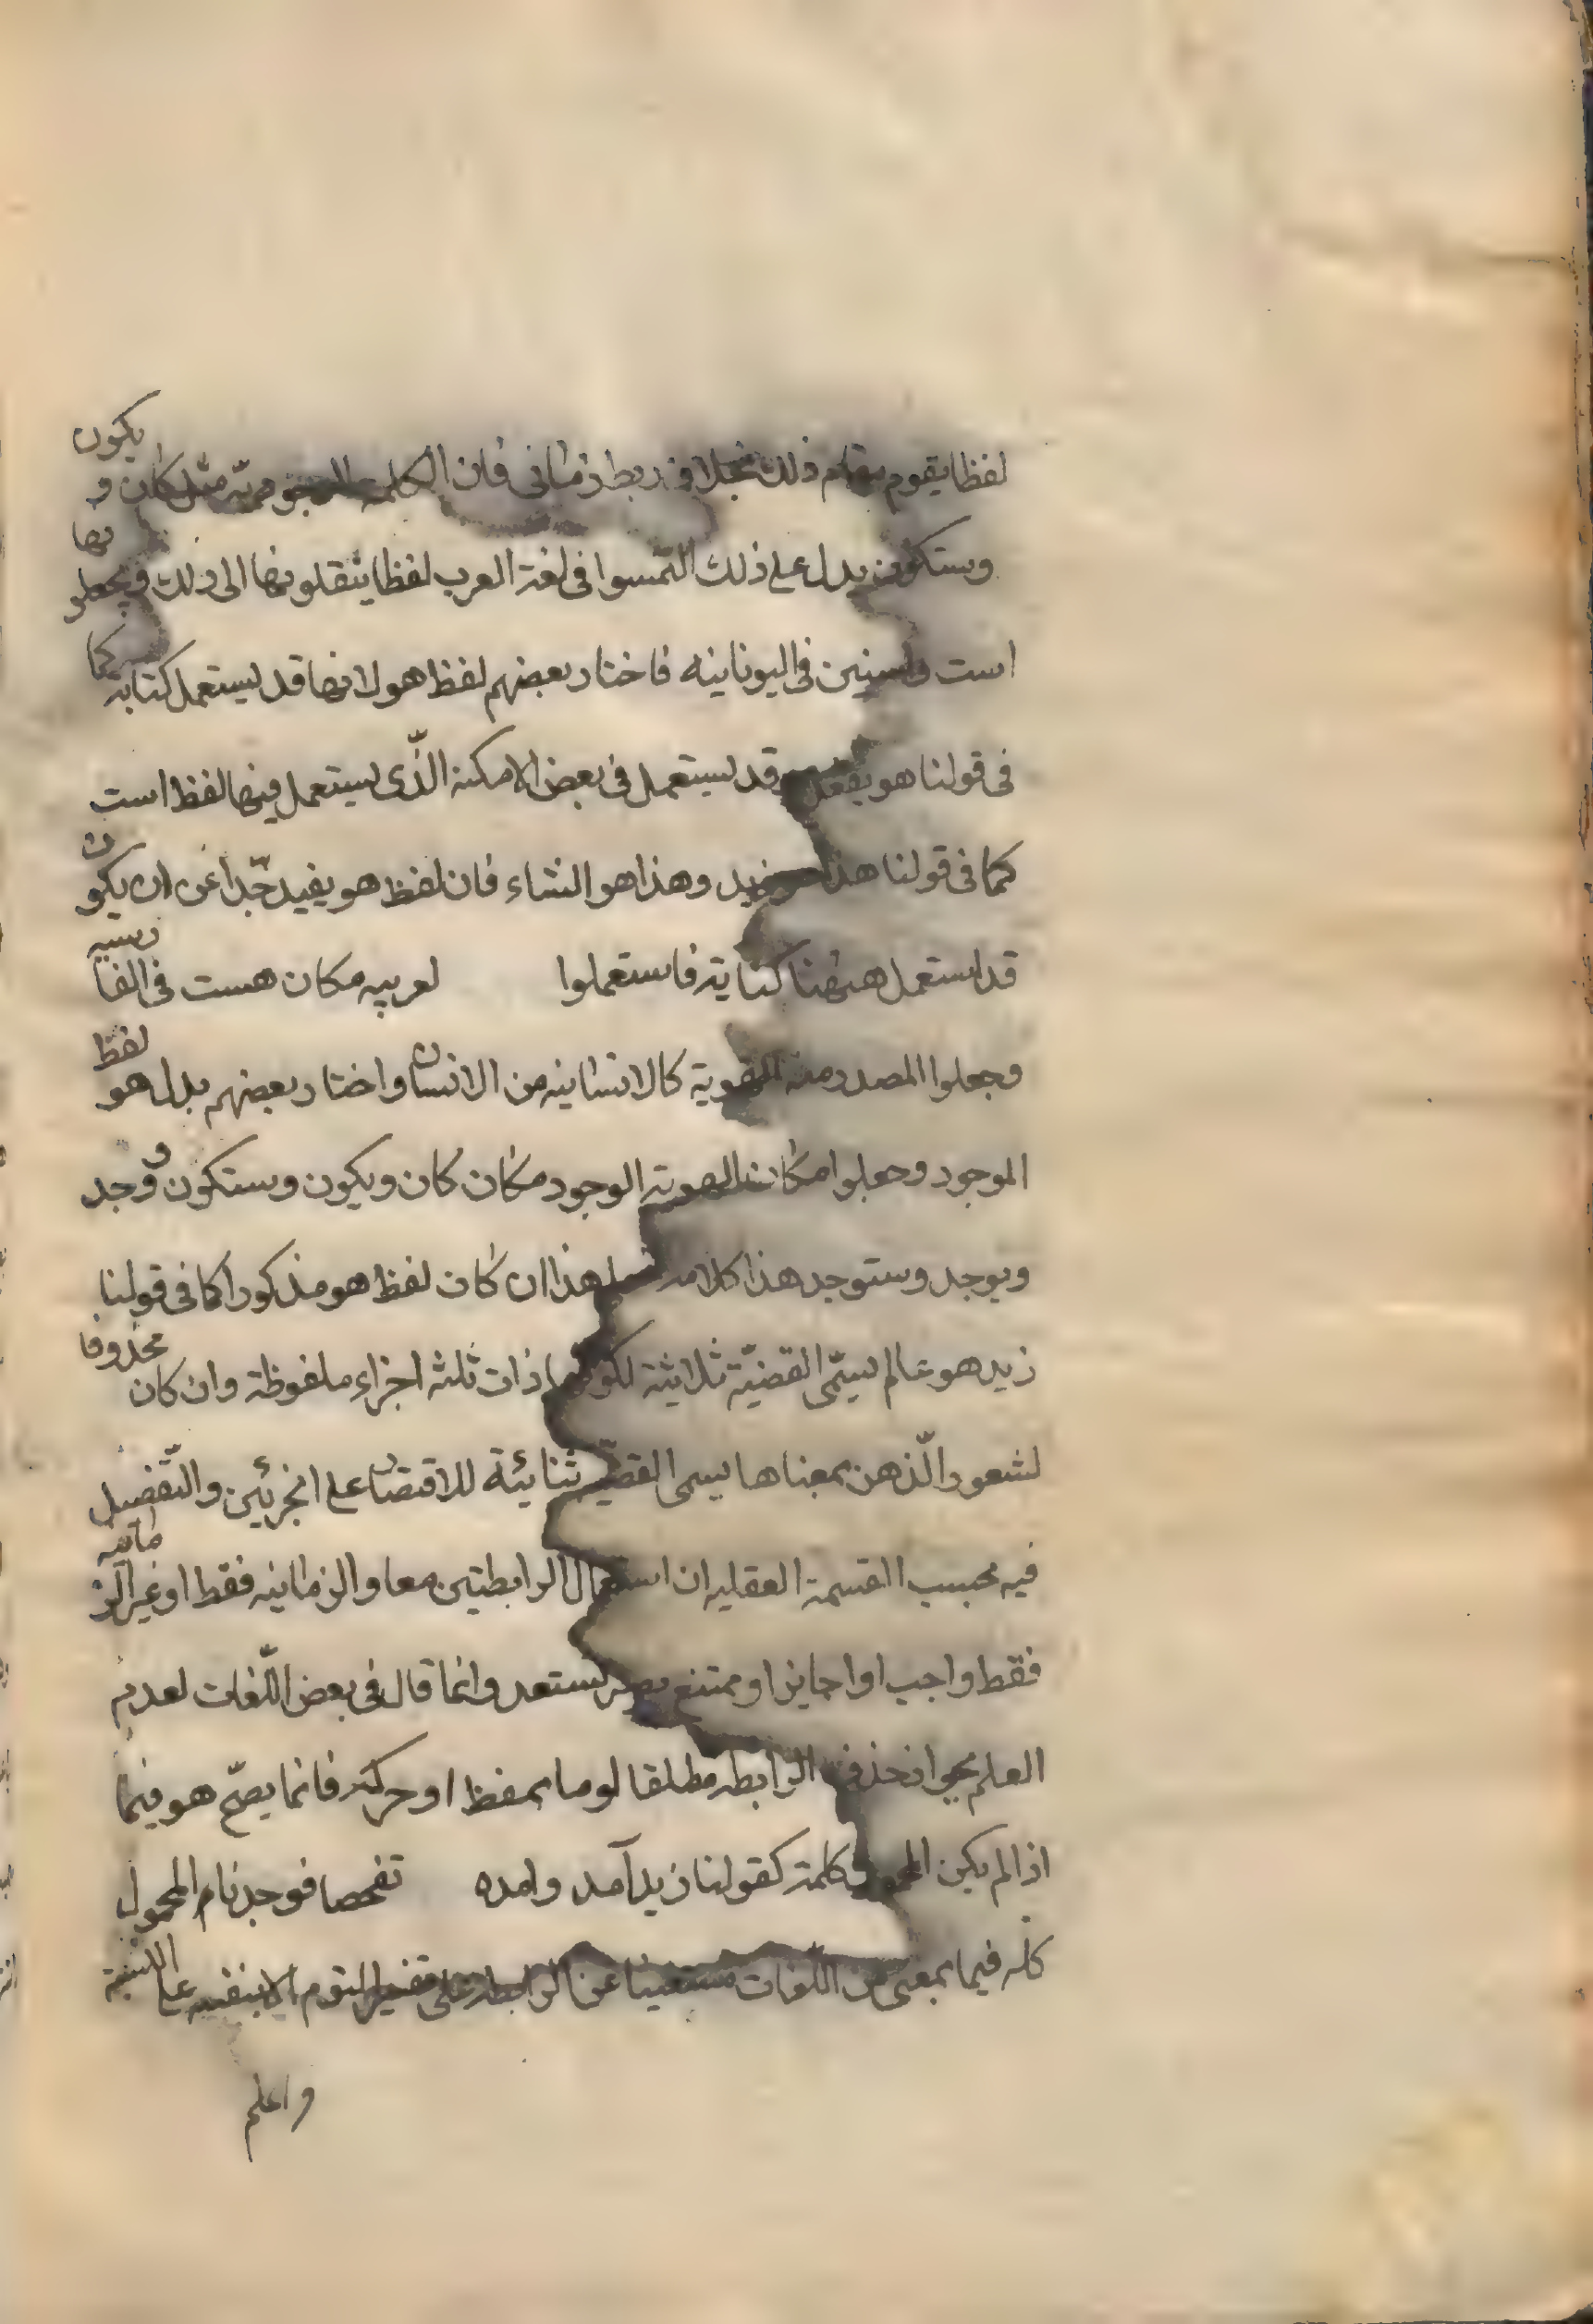 لفظا يقوم مقام ذلك بخلاف ربط زمانى فان الكلمة الوجودية مثل كان و يكون
وستكون يدل على ذلك التمسوا فى لغة العرب لفظا ينقلونها الى ذلك ويجعلونها
است واستين فى اليونانيه فاختار بعضهم لفظ هو لانها قد يستعمل كناية كما
فى قولنا هو يفعل وقد يستعمل فى بعض الامكنة الذى يستعمل فيها لفظ است
كما فى قولنا هذا هو زيد وهذا هو الشاء فان لفظ هو يفيد جدا عن ان يكون
قد استعمل ههنا كناية فاستعملوا لعربيه مكان هست فى الفارسيه
وجعلوا المصدر منه الهوية كالانسانيه من الانسان واختار بعضهم بدل هو لفظ
الموجود وجعلوا مكان الهوية الوجود مكان كان ويكون وستكون وجد و
ويوجد وستوجد هذا كلامه هذا ان كان لفظ هو مذكورا كما فى قولنا
زيد هو عالم يسمى القضية ثلاثية لكونها ذات ثلثه اجزاء ملفوظة وان كان محذوفا
لشعور الذهن بمعناها يسمى القضية ثنائية للاقتصار على الجزئين والتفضيل
فيه بحسب القسمة العقليه ان استعمال الرابطتين معا والزمانيه فقط او غير الزمانيه
فقط واجب او جايز او ممتنع تستعد وانما قال فى بعض اللغات لعدم
العلم الرابطه مطلقا لو ما بلفظ او حركة فانما يصح هو فيما
اذا لم يكن المحمول كلمة كقولنا زيد آمد وامده تفحصا فوجدنا المحمول
كله فيما بمعنى من اللغات مستغنيا عن الرابطه على على النسبة
واعلم